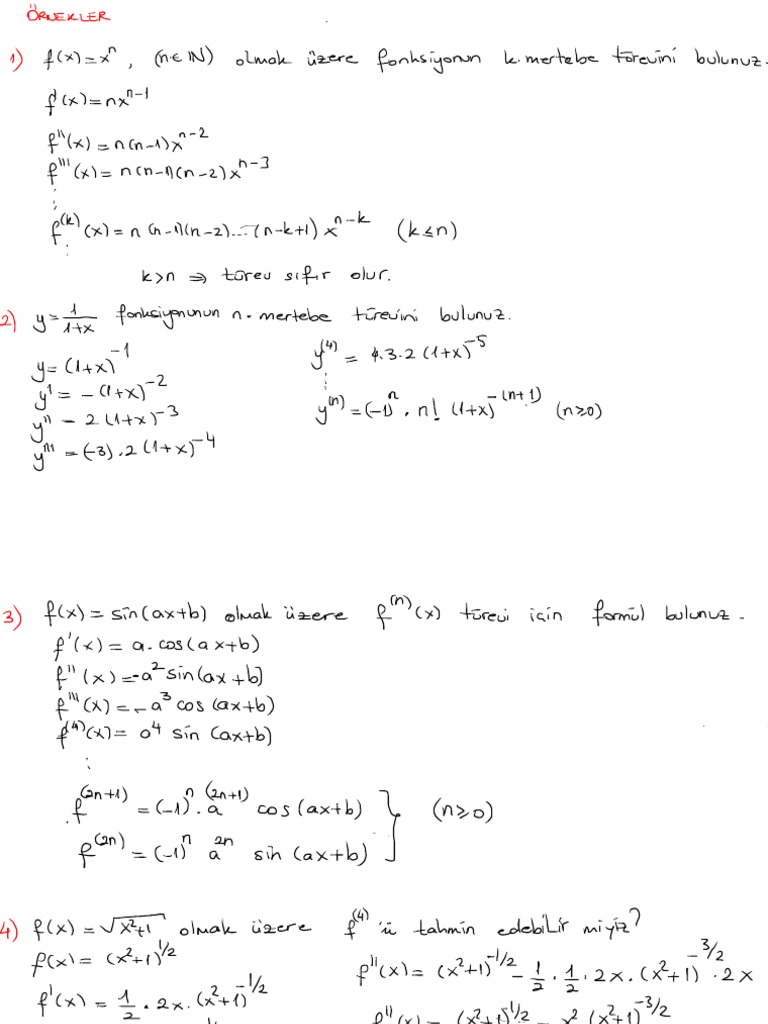 ÖRNEKLER
1) f(x)=xⁿ, (n∈IN) olmak üzere fonksiyonun k.mertebe türevini bulunuz.
f'(x)=nxⁿ⁻¹
f''(x)=n(n-1)xⁿ⁻²
f'''(x)=n(n-1)(n-2)xⁿ⁻³
⋮
f⁽ᵏ⁾(x)=n(n-1)(n-2)...(n-k+1)xⁿ⁻ᵏ (k≤n)
⋮
k>n ⇒ türev sıfır olur.
2) y=1/(1+x) fonksiyonunun n.mertebe türevini bulunuz.
y=(1+x)⁻¹
y'=-(1+x)⁻²
y''=2(1+x)⁻³
y'''=(-3).2(1+x)⁻⁴
y⁽⁴⁾=4.3.2(1+x)⁻⁵
⋮
y⁽ⁿ⁾=(-1)ⁿ.n!(1+x)⁻⁽ⁿ⁺¹⁾ (n≥0)
3) f(x)=sin(ax+b) olmak üzere f⁽ⁿ⁾(x) türevi için formül bulunuz.
f'(x)=a.cos(ax+b)
f''(x)=-a²sin(ax+b)
f'''(x)=-a³cos(ax+b)
f⁽⁴⁾(x)=a⁴sin(ax+b)
⋮
f⁽²ⁿ⁺¹⁾=(-1)ⁿ.a⁽²ⁿ⁺¹⁾cos(ax+b)
f⁽²ⁿ⁾=(-1)ⁿa²ⁿsin(ax+b)
} (n≥0)
4) f(x)=√(x²+1) olmak üzere f⁽⁴⁾'ü tahmin edebilir miyiz?
f(x)=(x²+1)^1/2
f'(x)=1/2.2x.(x²+1)^-1/2
f''(x)=(x²+1)^-1/2-1/2.1/2.2x.(x²+1)^-3/2.2x
f''(x)=(x²+1)^-1/2-x²(x²+1)^-3/2